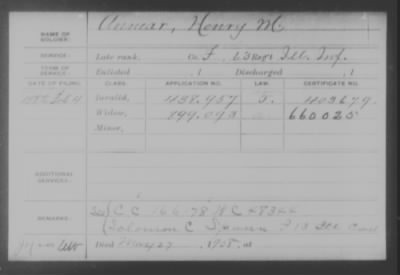 NAME OF SOLDIER: Annear, Henry M.
SERVICE: Late rank, Co. F, 63 Reg't Ill. Inf.
TERM OF SERVICE: Enlisted , 1 Discharged , 1
DATE OF FILING. CLASS. APPLICATION NO. LAW. CERTIFICATE NO.
Invalid, 438.957 403679.
Widow, 899.093 660025
Minor,
ADDITIONAL SERVICES:
REMARKS: C C 166178 C 28322
Solomon C. F 13 Ill Cav
Died May 27, 1908, at